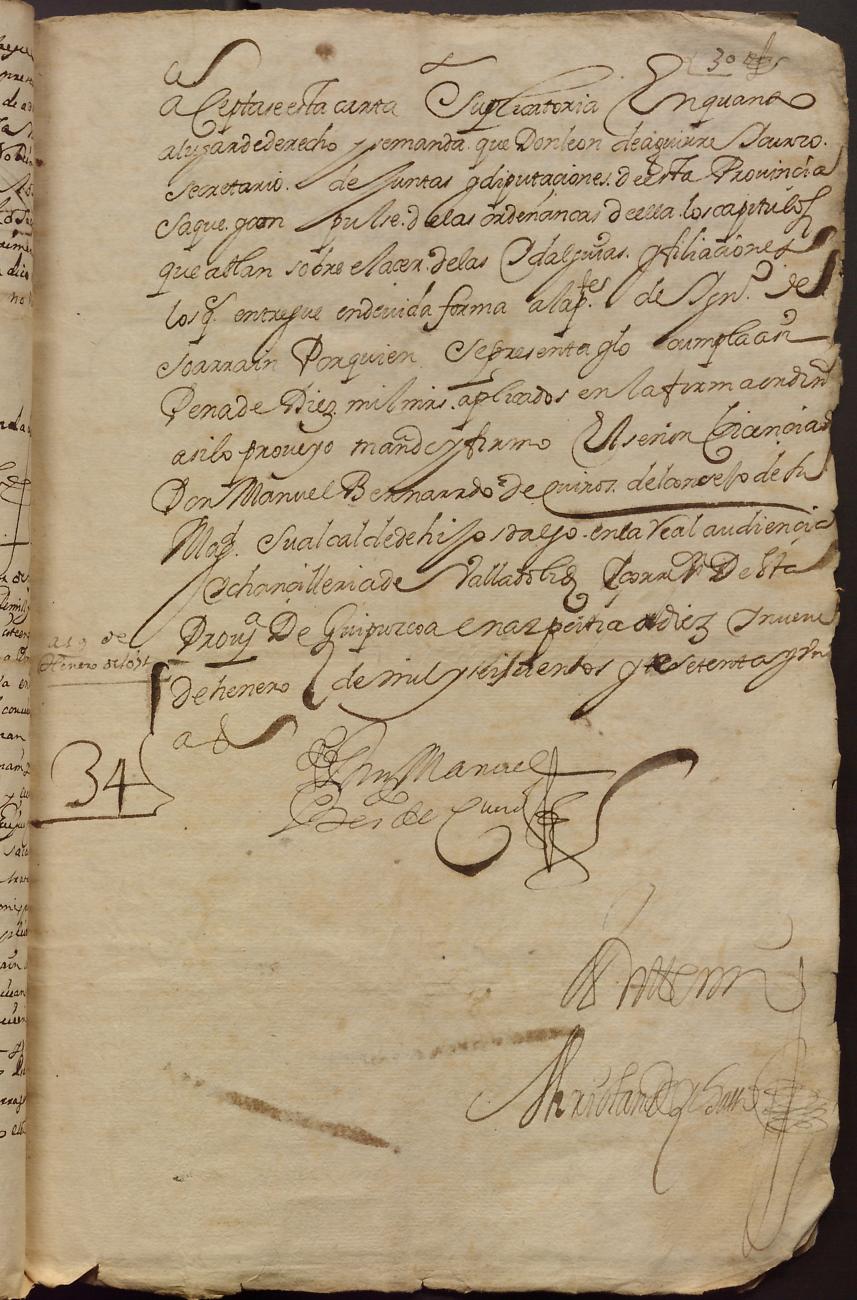 30 rs
aCeptase esta carta Suplicatoria Enquanto
alugardederecho y semanda. que Donleon deaguirre Yçurco.
secretario. de Juntas ydiputaciones. deesta Provincia
saque. y compulse. delas ordenancas deella. loscapitulos
que ablan sobre elacer. delas ydalguias. yfiliaciones
losq. entregue endevida forma alapte. de Jun. de
Soarrain Porquien sepresenta y lo cumpla asi
Penade Diez mil mrs. aplicados en la forma ordinª
asilo proveyo mandoyfirmo Elseñor Licenciado
Don Manuel Bernardo de quiros. delconsejo desu
Magd. Sualcaldedehijosdalgo. enla Real audiencia
Echancilleriade Valladolid Ycorrexr Desta
Prouª De Guipuzcoa enazpeitia adiez ynueve
dehenero de mil yseiscientos y setenta yun
as
a 19 de
Henero de 1671
34
Don Manuel
Ber de Quiros
Antte mi